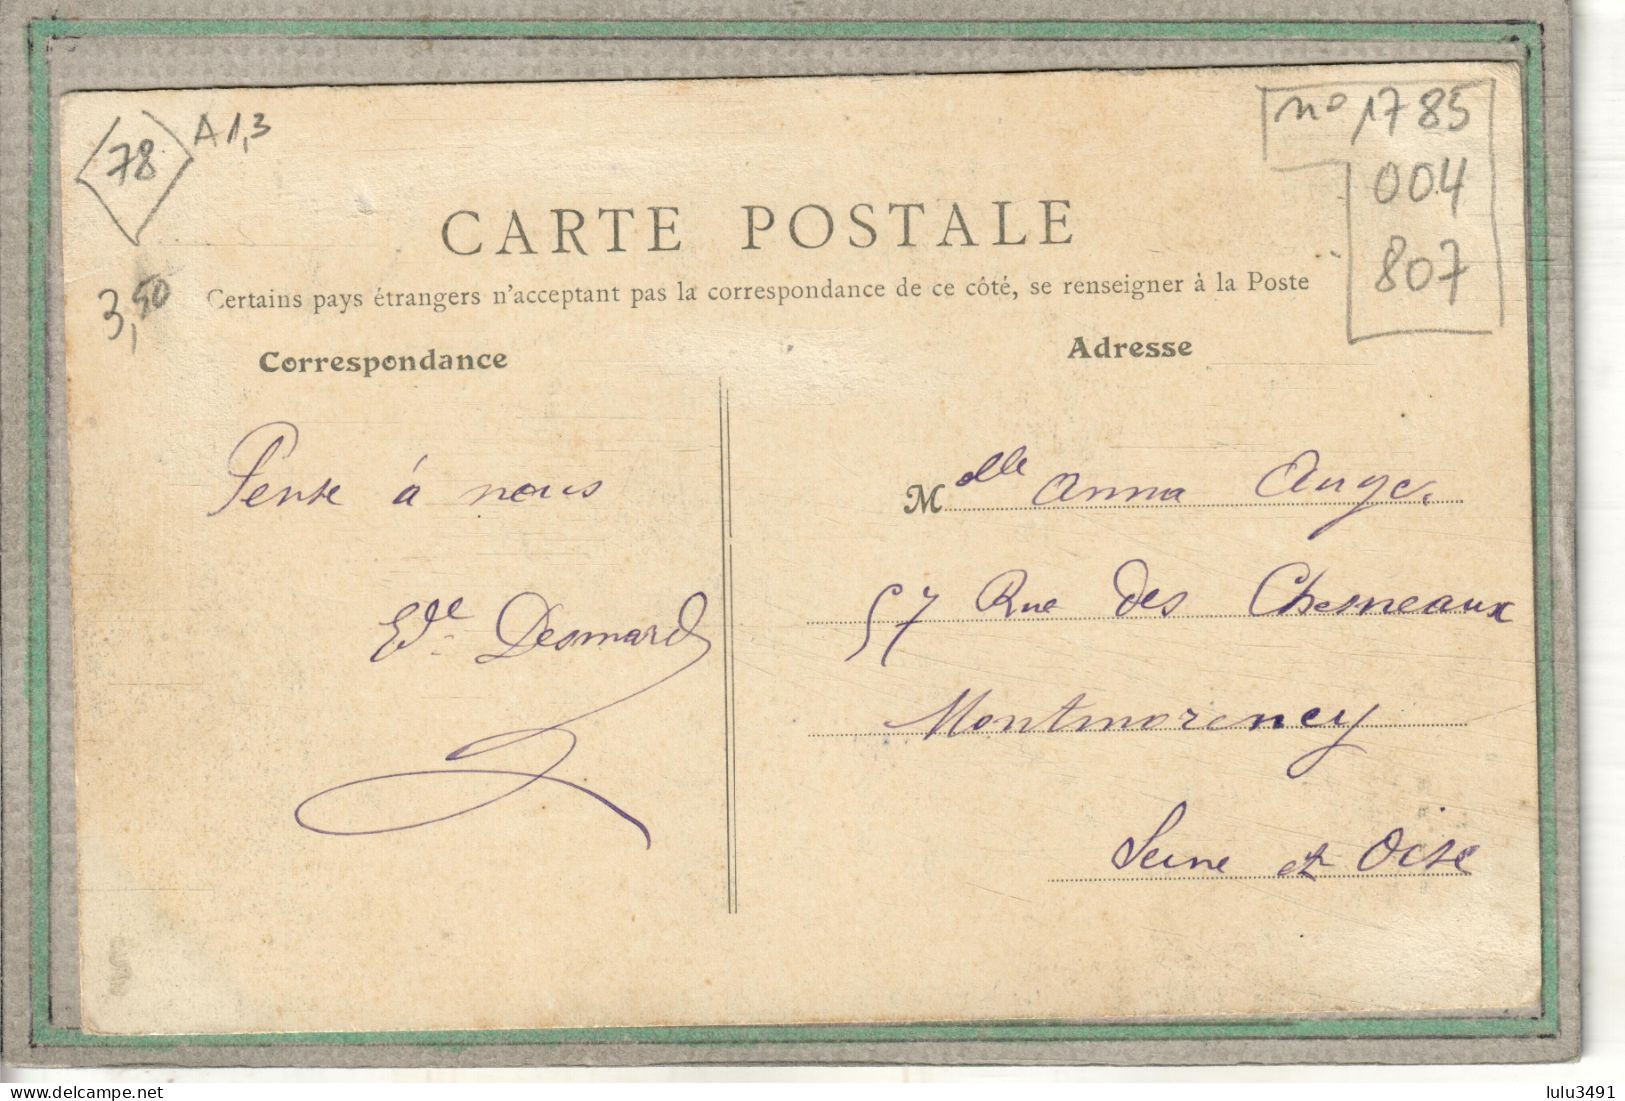 78
A1,3
n° 1785
004
807
CARTE POSTALE
3,50
Certains pays étrangers n'acceptent pas la correspondance de ce côté, se renseigner à la Poste
Correspondance
Adresse
Pense à nous
Ede Desmard
Mdlle Anna Auge.
57 Rue des Chesneaux
Montmorency
Seine et Oise
www.delcampe.net
lulu3491